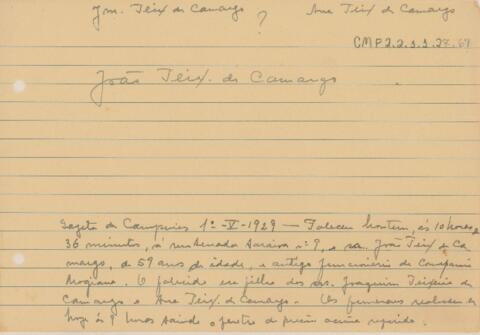 Jm. Teix de Camargo ? Ana Teix de Camargo
CMP 2.2.1.1.28.67
João Teix. de Camargo
Gazeta de Campinas 1º-V-1929 — Faleceu hontem, ás 10 horas e
36 minutos, á rua Senada Saraiva nº 9, o sr. João Teix de Ca
margo, de 59 anos de idade, e antigo funcionario da Companhia
Mogiana. O falecido era filho dos srs. Joaquim Teixeira de
Camargo e Ana Teix. de Camargo. Os funeraes realisam-se
hoje ás 9 horas saindo o feretro do predio acima referido.